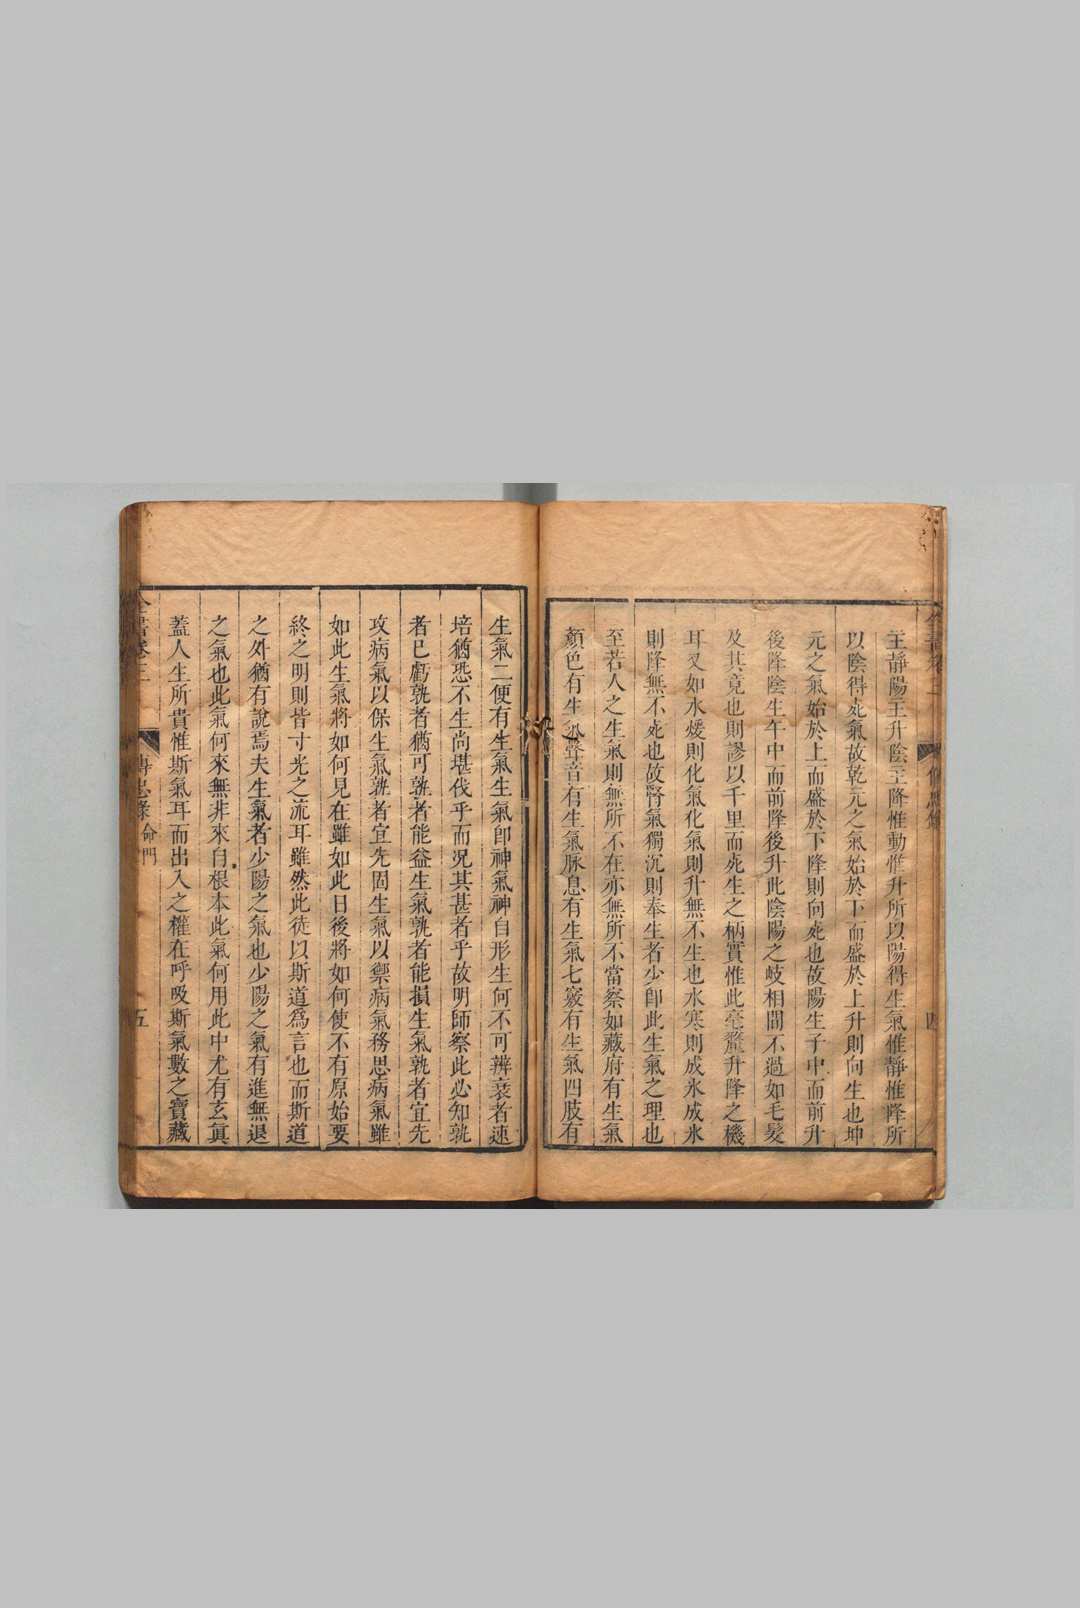 主靜陽主升陰主降惟動惟升所以陽得生氣惟靜惟降所
以陰得死氣故乾元之氣始於下而盛於上升則向生也坤
元之氣始於上而盛於下降則向死也故陽生子中而前升
後降陰生午中而前降後升此陰陽之岐相間不過如毛髮
及其竟也則謬以千里而死生之柄實惟此毫釐升降之機
耳又如水煖則化氣化氣則升無不生也水寒則成氷成氷
則降無不死也故腎氣獨沉則奉生者少卽此生氣之理也
至若人之生氣則無所不在亦無所不當察如藏府有生氣
顏色有生氣聲音有生氣脉息有生氣七竅有生氣四肢有
生氣二便有生氣生氣卽神氣神自形生何不可辨衰者速
培猶恐不生尚堪伐乎而況其甚者乎故明師察此必知孰
者已虧孰者猶可孰者能益生氣孰者能損生氣孰者宜先
攻病氣以保生氣孰者宜先固生氣以禦病氣務思病氣雖
如此生氣將如何見在雖如此日後將如何使不有原始要
終之明則皆寸光之流耳雖然此徒以斯道爲言也而斯道
之外猶有說焉夫生氣者少陽之氣也少陽之氣有進無退
之氣也此氣何來無非來自根本此氣何用此中尤有玄眞
蓋人生所貴惟斯氣耳而出入之權在呼吸斯氣數之寶藏
全書卷三
傳忠錄 命門
五